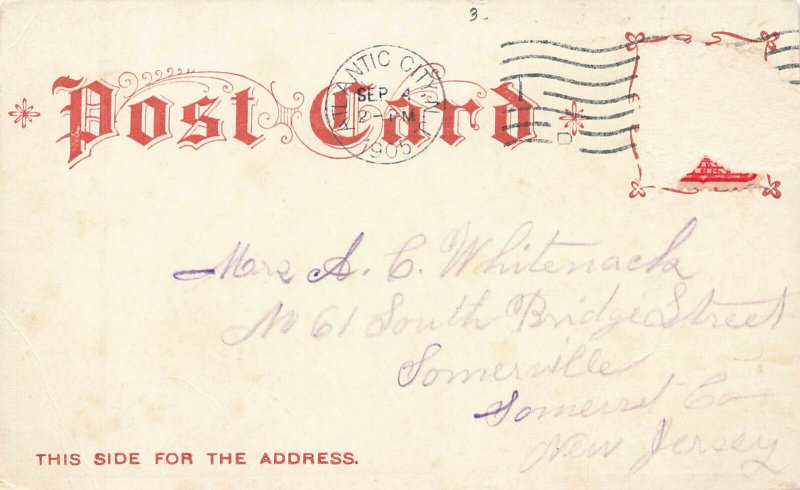 3
Post Card
ATLANTIC CITY, N.J.
SEP
2 - PM
1905
D
Mrs A. C. Whitenack
No 61 South Bridge Street
Somerville
Somerset Co
New Jersey
THIS SIDE FOR THE ADDRESS.